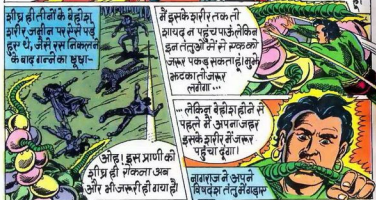 शीघ्र ही तीनों के बेहोश
शरीर जमीन पर ऐसे पड़े
हुए थे, जैसे रस निकलने
के बाद गन्ने का भूषा-
ओह! इस प्राणी को
शीघ्र रोकना अब
और भी जरूरी हो गया है।
मैं इसके शरीर तक तो
शायद न पहुंच पाऊं लेकिन
इन तंतुओं में से एक को
जरूर पकड़ सकता हूं। मुझे
झटका तो जरूर
लगेगा...
...लेकिन बेहोश होने से
पहले मैं अपना जहर
इसके शरीर में जरूर
पहुंचा दूंगा।
नागराज ने अपने
विषदंश तंतु में गड़ाए